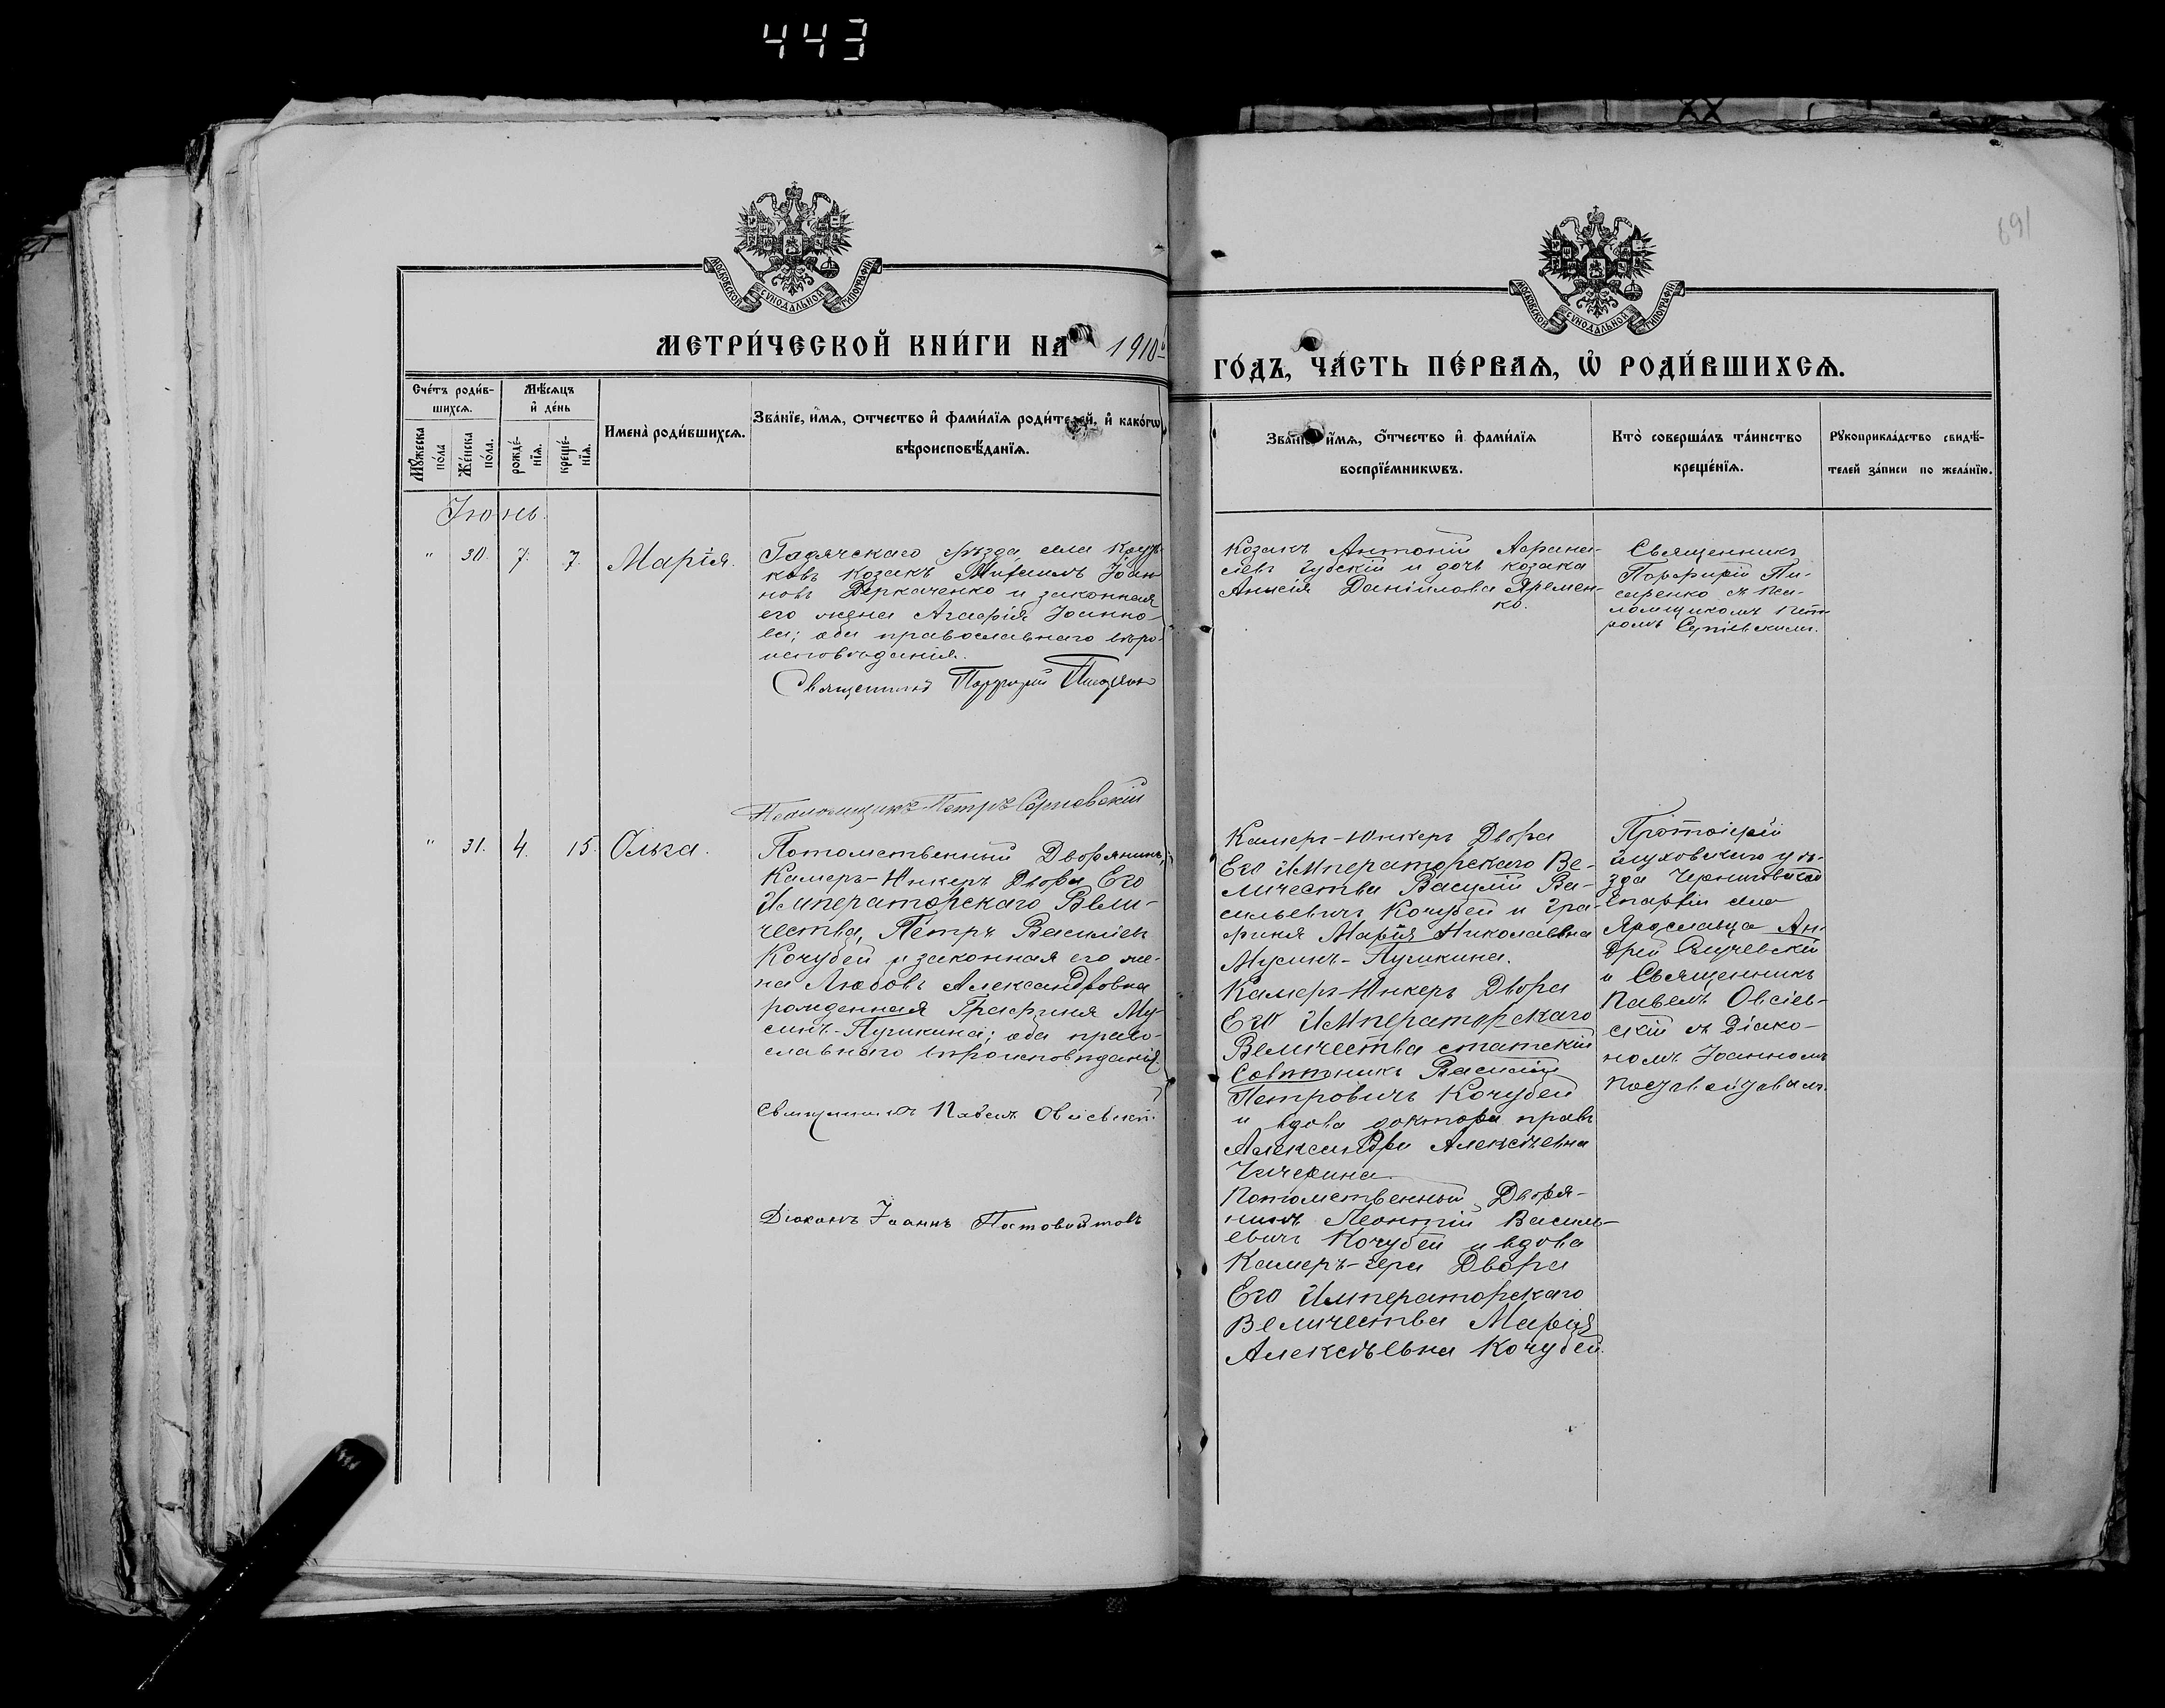 443
691
МОСКОВСКОЙ СѴНОДАЛЬНОЙ ТИПОГРАФІИ
МОСКОВСКОЙ СѴНОДАЛЬНОЙ ТИПОГРАФІИ
МЕТРИ́ЧЕСКОЙ КНИ́ГИ НА 1910й
ГО́ДЪ, ЧА́СТЬ ПЕ́РВАЯ, Ѡ РОДИ́ВШИХСЯ.
Сче́тъ роди́в-
шихся.
Мꙋ́жеска
по́ла
Же́нска
по́ла.
Мѣ́сяцъ
и҆ де́нь
рожде́-
нїя.
креще́-
нїя.
Имена̀ роди́вшихся.
Зва́нїе, и҆́мя, ѻ҆́тчество и҆ фами́лїя роди́телей, и҆ како́гѡ
вѣроисповѣ́данїя.
Зва́нїе, и҆́мя, ѻ҆́тчество и҆ фами́лїя
воспрїе́мникѡвъ.
Кто̀ соверша́лъ та́инство
креще́нїя.
Рꙋкоприкла́дство свидѣ́-
телей за́писи по жела́нїю.
Іюнь.
" 30. 7. 7. Марія.
Гадячскаго уѣзда села Кру
ковъ козакъ Михаилъ Іоан
новъ Деркаченко и законная
его жена Агафія Іоанно-
ва; оба православнаго вѣро-
исповѣданія.
Священникъ Порфирій Писаренко
Псаломщикъ Петръ Сергіевскій
Козакъ Антоній Афана-
сіевъ Губскій и дочь козака
Анисія Даніилова Яремен-
ко.
Священникъ
Порфирій Пи-
саренко съ пса-
ломщикомъ Пет-
ромъ Сергіевскимъ.
" 31. 4. 15. Ольга.
Потомственный Дворянинъ,
Камеръ-Юнкеръ Двора Его
Императорскаго Вели-
чества, Петръ Васильев
Кочубей и законная его же-
на Любовь Александровна
рожденная Графиня Му-
синъ-Пушкина; оба право-
славнаго вѣроисповѣданія.
Священникъ Павелъ Овсіевскій.
Діаконъ Іоаннъ Постовойтовъ
Камеръ-Юнкеръ Двора
Его Императорскаго Ве-
личества Василій Ва-
сильевичъ Кочубей и гра-
финя Марія Николаевна
Мусинъ-Пушкина.
Камеръ-Юнкеръ Двора
Его Императорскаго
Величества статскій
Совѣтникъ Василій
Петровичъ Кочубей
и вдова доктора правъ
Александра Алексѣевна
Чичерина
Потомственный Дворя-
нинъ Леонтій Василь-
евичъ Кочубей и вдова
Камеръ-гера Двора
Его Императорскаго
Величества Марія
Алексѣевна Кочубей.
Протоіерей
Глуховскаго уѣ-
зда Черниговской
Епархіи села
Ярославца Ан-
дрей
и Священникъ
Павелъ Овсіев-
скій съ діако-
номъ Іоанномъ